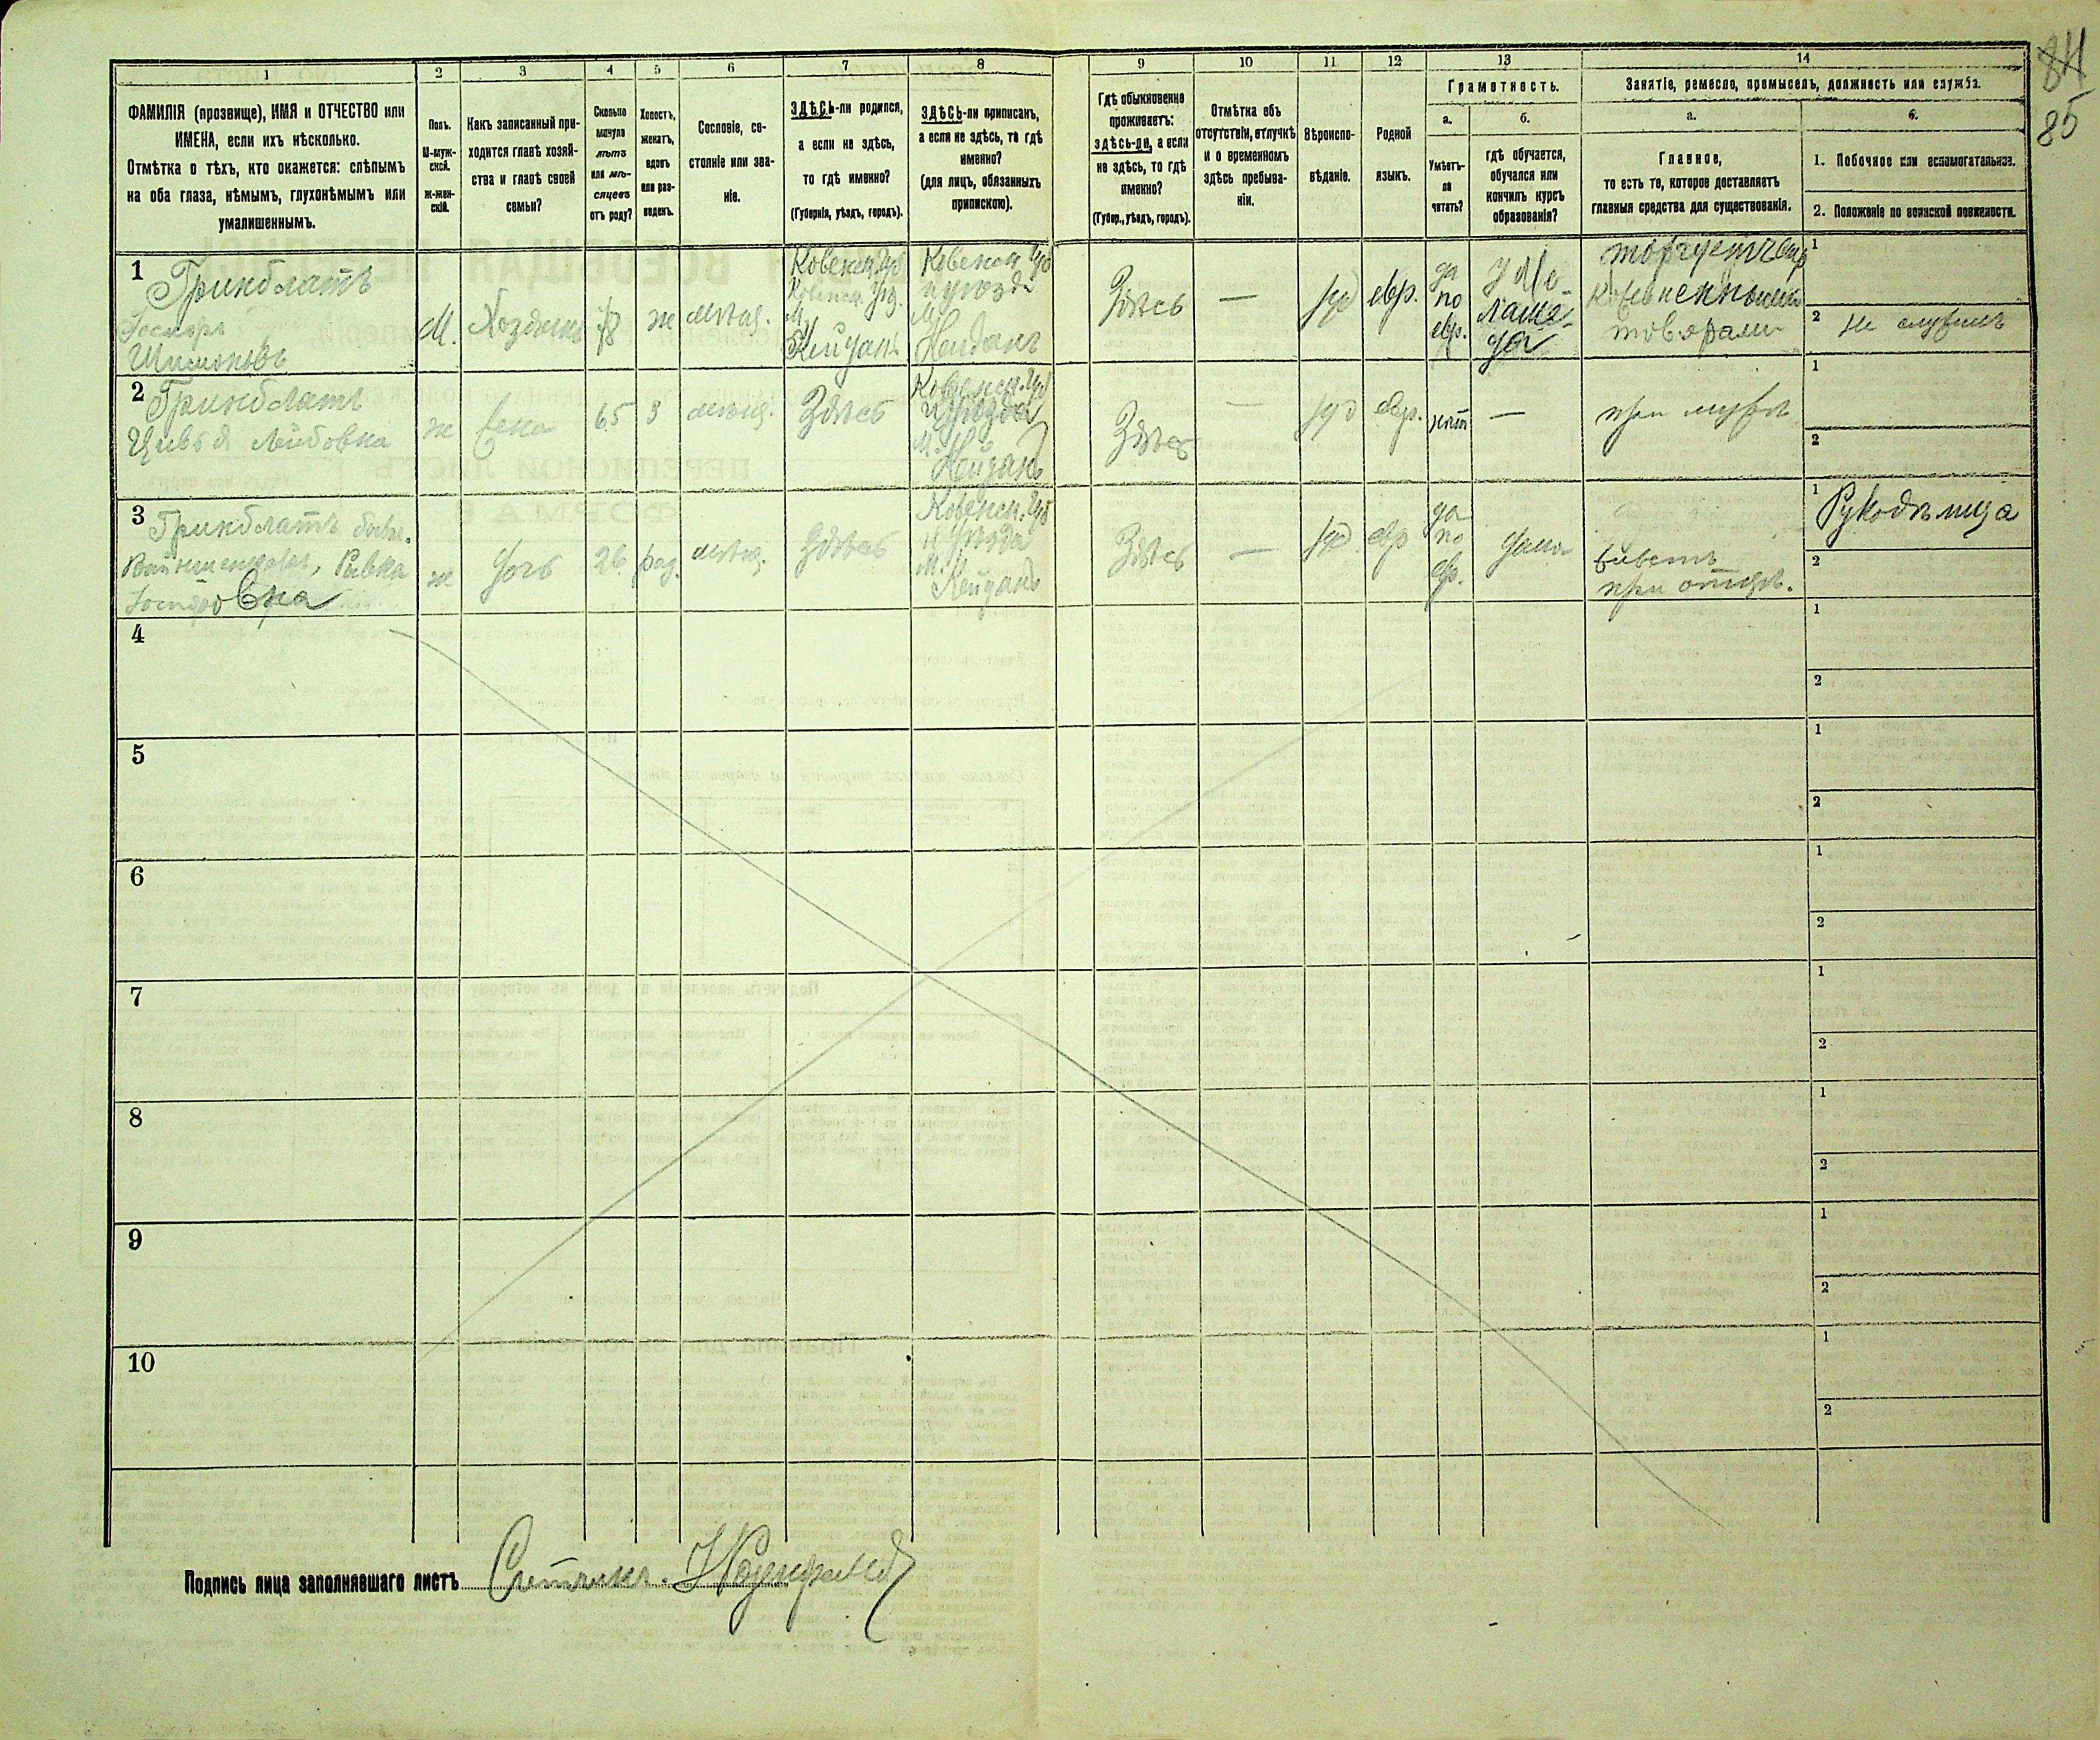 84
85
1 2 3 4 5 6 7 8 9 10 11 12 13 14
ФАМИЛІЯ (прозвище), ИМЯ и ОТЧЕСТВО или
ИМЕНА, если ихъ нѣсколько.
Отмѣтка о тѣхъ, кто окажется: слѣпымъ
на оба глаза, нѣмымъ, глухонѣмымъ или
умалишеннымъ.
Полъ.
М-муж-
ской.
ж-жен-
скій.
Какъ записанный при-
ходится главѣ хозяй-
ства и главѣ своей
семьи?
Сколько
минуло
лѣтъ
или мѣ-
сяцевъ
отъ роду?
Холостъ,
женатъ,
вдовъ
или раз-
веденъ.
Сословіе, со-
стояніе или зва-
ніе.
ЗДѢСЬ-ли родился,
а если не здѣсь,
то гдѣ именно?
(Губернія, уѣздъ, городъ).
ЗДѢСЬ-ли приписанъ,
а если не здѣсь, то гдѣ
именно?
(для лицъ, обязанныхъ
припискою).
Гдѣ обыкновенно
проживаетъ:
здѣсь-ли, а если
не здѣсь, то гдѣ
именно?
(Губер., уѣздъ, городъ).
Отмѣтка объ
отсутствіи, отлучкѣ
и о временномъ
здѣсь пребыва-
ніи.
Вѣроиспо-
вѣданіе.
Родной
языкъ.
Грамотность.
а.
Умѣетъ-
ли
читать?
б.
гдѣ обучается,
обучался или
кончилъ курсъ
образованія?
Занятіе, ремесло, промыселъ, должность или служба.
а.
Главное,
то есть то, которое доставляетъ
главныя средства для существованія.
б.
1. Побочное или вспомогательное.
2. Положеніе по воинской повинности.
1
Гринблатъ
Шимоновъ
М.
Хозяинъ
ж
мѣщ.
Ковенск. Губ
Ковенск. Уѣз.
М.
Кейданъ
Ковенск Губ
и уѣзда
М.
Кейданъ
Здѣсь
—
іуд
евр.
да
по
евр.
у Ме-
ламе-
да
товарами
1
2 не служилъ
2
Гринблатъ
Цивья Лейбовна
ж
жена
65
З
мѣщ.
Здѣсь
Ковенск. Губ
и уѣзда
М.
Кейданъ
Здѣсь
—
іуд
евр.
нѣт
—
при мужѣ
1
2
3
Гринблатъ
Ривка
ж
дочь
26
раз.
мѣщ.
Здѣсь
Ковенск. Губ
и уѣзда
М.
Кейданъ
Здѣсь
—
іуд
евр
да
по
евр.
дома
живетъ
при отцѣ.
1 Рукодѣлица
2
4
1
2
5
1
2
6
1
2
7
1
2
8
1
2
9
1
2
10
1
2
Подпись лица заполнявшаго листъ Счетчикъ